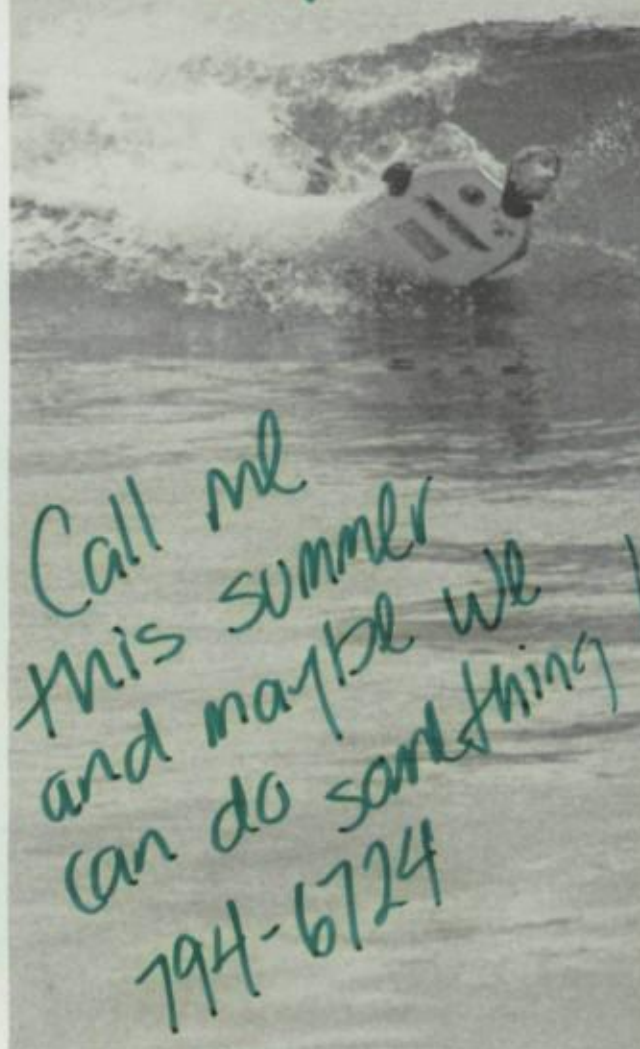 Call me
this summer
and maybe we
can do something
794-6724